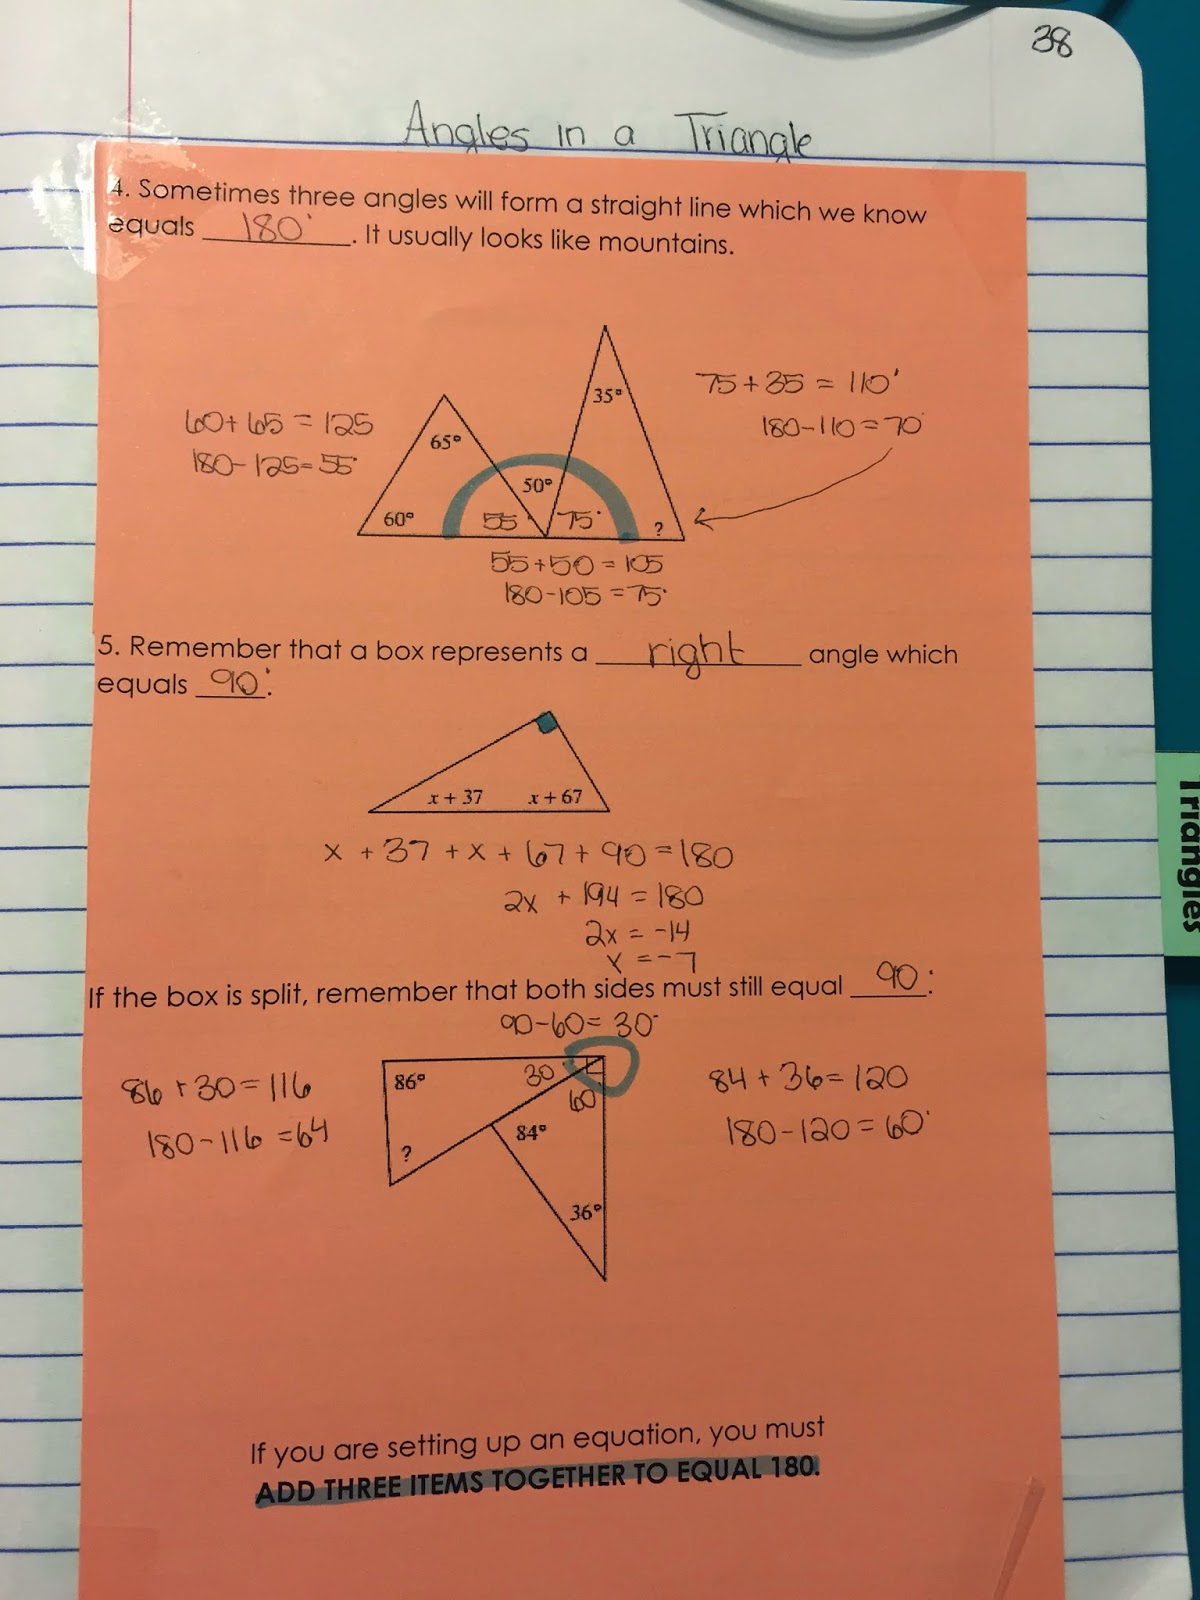 38
Angles in a Triangle
4. Sometimes three angles will form a straight line which we know
equals 180°. It usually looks like mountains.
75+35 = 110°
180-110=70
60+65 = 125
180-125=55°
65°
60°
55
50°
75°
35°
?
55+50=105
180-105=75°
5. Remember that a box represents a right angle which
equals 90°.
x + 37
x + 67
x + 37 + x + 67 + 90 = 180
2x + 194 = 180
2x = -14
x = -7
If the box is split, remember that both sides must still equal 90°.
90-60= 30°
86+30=116
180-116=64
86°
30
60
84°
?
36°
84+36=120
180-120=60°
If you are setting up an equation, you must
ADD THREE ITEMS TOGETHER TO EQUAL 180.
Triangles